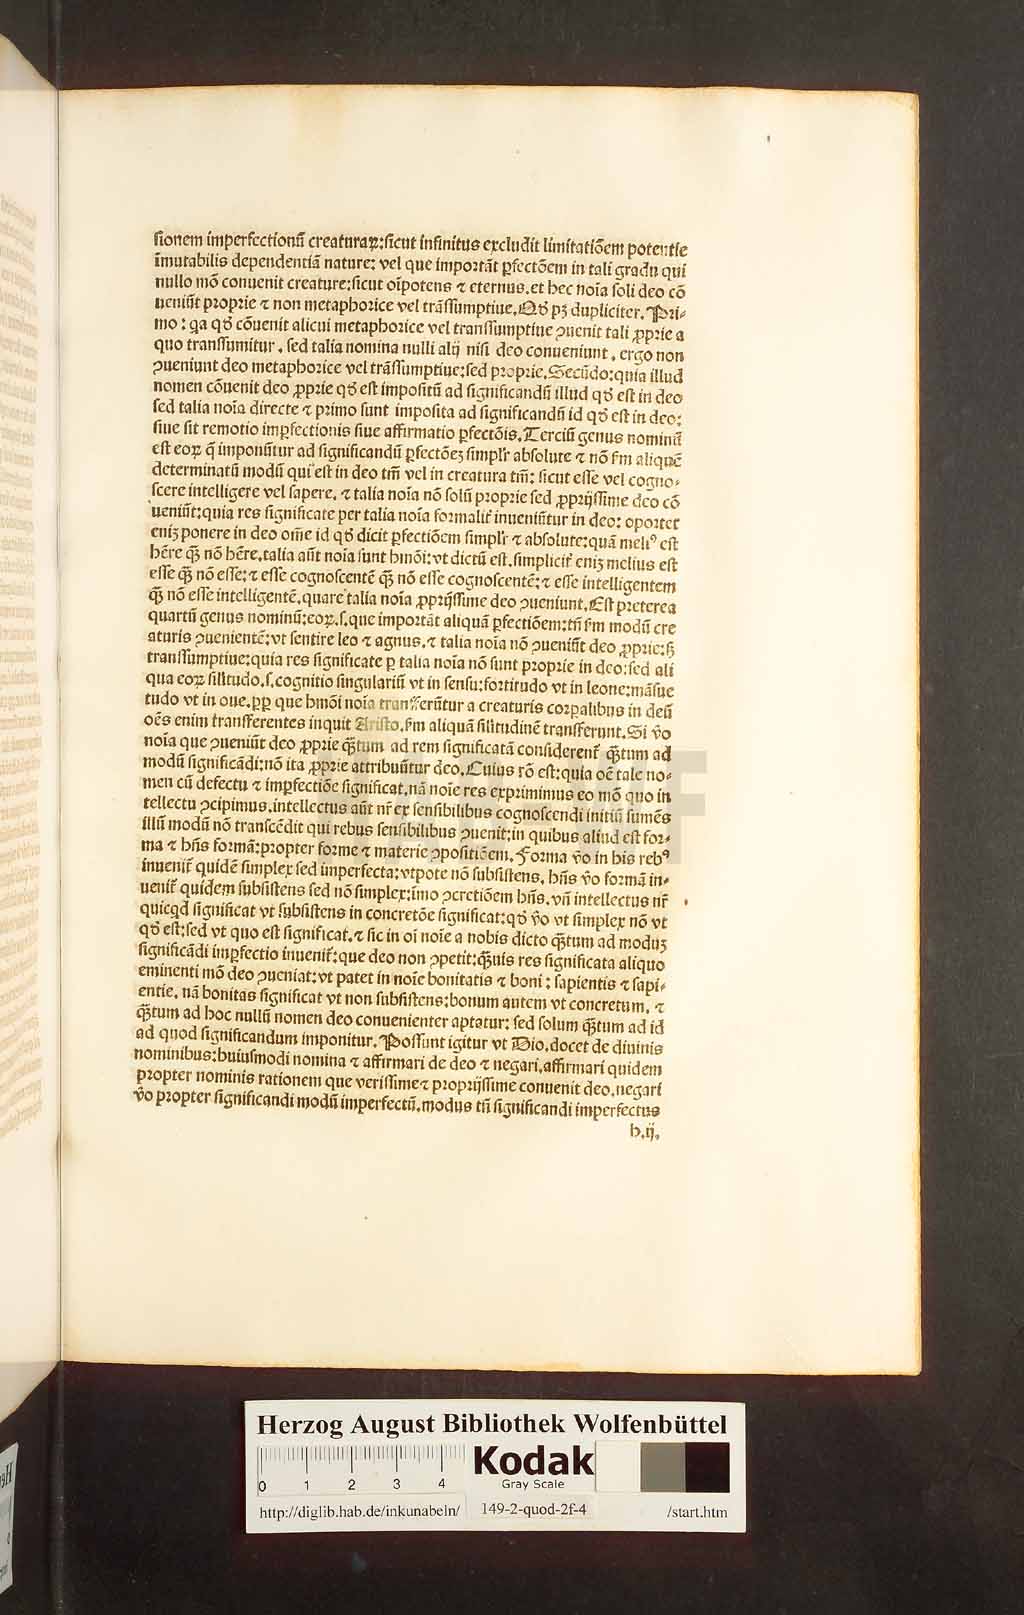 sionem imperfectionū creaturaꝝ:sicut infinitus excludit limitatiōem potentie
īmutabilis dependentiā nature: vel que importāt ꝑfectōem in tali gradu qui
nullo mō conuenit creature:sicut oīpotens ⁊ eternus.et hec noīa soli deo cō
ueniūt proprie ⁊ non metaphorice vel trāssumptiue.Qđ pꝫ dupliciter.Pri-
mo: qa qđ cōuenit alicui metaphorice vel transsumptiue ꝯuenit tali ꝓprie a
quo transsumitur. sed talia nomina nulli alij nisi deo conueniunt. ergo non
ꝯueniunt deo metaphorice vel trāssumptiue:sed proprie.Secūdo:quia illud
nomen cōuenit deo ꝓprie qđ est impositū ad significandū illud qđ est in deo
sed talia noīa directe ⁊ primo sunt imposita ad significandū id qđ est in deo:
siue sit remotio imꝑfectionis siue affirmatio ꝑfectōis.Terciū genus nominū
est eoꝝ q̄ imponūtur ad significandū ꝑfectōeꝫ simplr̄ absolute ⁊ nō ẜm aliquē
determinatū modū qui est in deo tm̄ vel in creatura tm̄: sicut esse vel cogno-
scere intelligere vel sapere. ⁊ talia noīa nō solū proprie sed ꝓprijssime deo cō
ueniūt:quia res significate per talia noīa formalit̄ inueniūtur in deo: oportet
eniꝫ ponere in deo om̄e id qđ dicit ꝑfectiōem simplr̄ ⁊ absolute:quā meliꝰ est
hēre qꝫ̄ nō hēre.talia aūt noīa sunt hmōi:vt dictū est.simplicit̄ eniꝫ melius est
esse qꝫ̄ nō esse:⁊ esse cognoscentē qꝫ̄ nō esse cognoscentē:⁊ esse intelligentem
qꝫ̄ nō esse intelligentē.quare talia noīa ꝓprijssime deo ꝯueniunt.Est preterea
quartū genus nominū:eoꝝ.s.que importāt aliquā ꝑfectiōem:tn̄ ẜm modū cre
aturis ꝯuenientē:vt sentire leo ⁊ agnus.⁊ talia noīa nō ꝯueniūt deo ꝓprie:ß
transsumptiue:quia res significate ꝑ talia noīa nō sunt proprie in deo:sed ali
qua eoꝝ sil̄itudo.s.cognitio singulariū vt in sensu:fortitudo vt in leone:māsue
tudo vt in oue.ꝓꝑ que hmōi noīa transferūtur a creaturis corꝑalibus in deū
oēs enim transferentes inquit Aristo.ẜm aliquā sil̄itudinē transferunt.Si ṽo
noīa que ꝯueniūt deo ꝓprie qꝫ̄tum ad rem significatā considerent̄ qꝫ̄tum ad
modū significādi:nō ita ꝓprie attribuūtur deo.Cuius rō est:quia oē tale no-
men cū defectu ⁊ imꝑfectiōe significat.nā noīe res exprimimus eo mō quo in
tellectu ꝯcipimus.intellectus aūt nr̄ ex sensibilibus cognoscendi initiū sumēs
illū modū nō transcēdit qui rebus sensibilibus ꝯuenit:in quibus aliud est for-
ma ⁊ hn̄s formā:propter forme ⁊ materie ꝯpositiōem.Forma ṽo in his rebꝰ
inuenit̄ quidē simplex sed imperfecta:vtpote nō subsistens. hn̄s ṽo formā in-
uenit̄ quidem subsistens sed nō simplex:īmo ꝯcretiōem hn̄s.vn̄ intellectus nr̄
quicqd significat vt subsistens in concretōe significat:qđ ṽo vt simplex nō vt
qđ est:sed vt quo est significat.⁊ sic in oī noīe a nobis dicto qꝫ̄tum ad moduꝫ
significādi imꝑfectio inuenit̄:que deo non ꝯpetit:qꝫ̄uis res significata aliquo
eminenti mō deo ꝯueniat:vt patet in noīe bonitatis ⁊ boni: sapientis ⁊ sapi-
entie. nā bonitas significat vt non subsistens:bonum autem vt concretum. ⁊
qꝫ̄tum ad hoc nullū nomen deo conuenienter aptatur: sed solum qꝫ̄tum ad id
ad quod significandum imponitur.Possunt igitur vt Dio.docet de diuinis
nominibus:huiusmodi nomina ⁊ affirmari de deo ⁊ negari.affirmari quidem
propter nominis rationem que verissime⁊ proprijssime conuenit deo.negari
ṽo propter significandi modū imperfectū.modus tn̄ significandi imperfectus
b.ij.
HAB-WF
Herzog August Bibliothek Wolfenbüttel
0 1 2 3 4
Kodak
Gray Scale
http://diglib.hab.de/inkunabeln/ 149-2-quod-2f-4 /start.htm